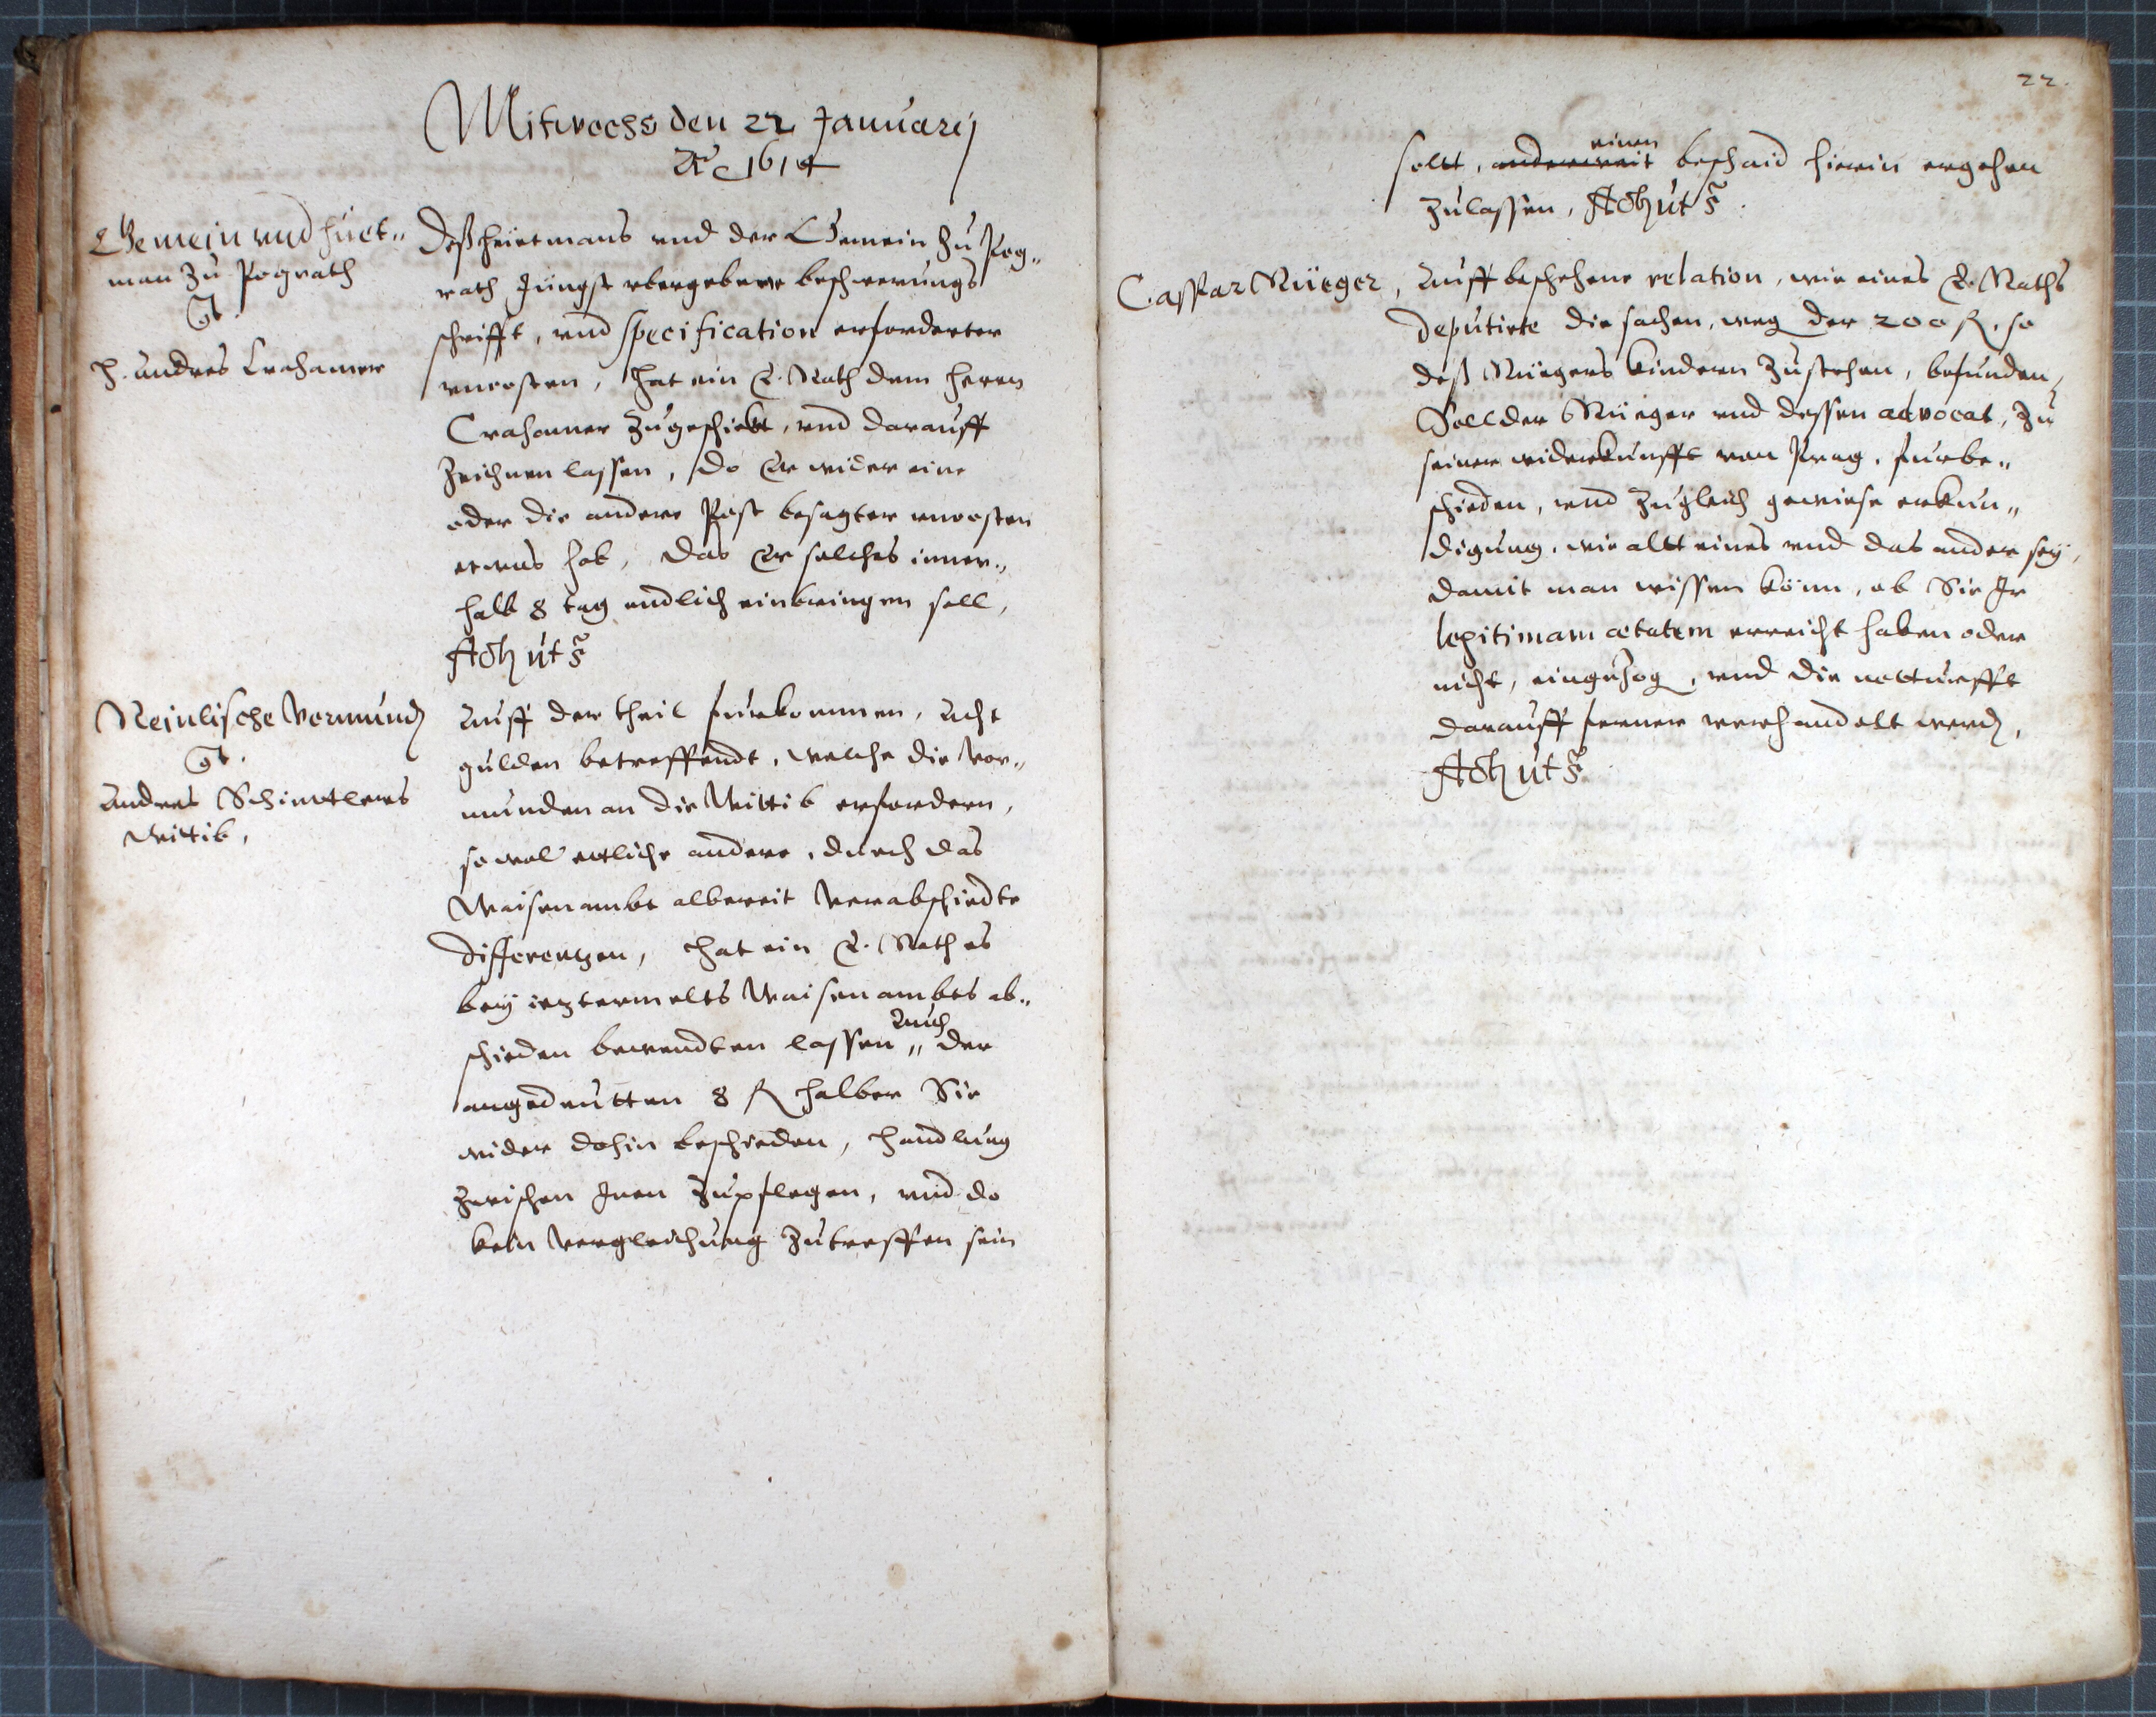 Mitwochs den 22 Januarij
Ao 1614
Gemein vnd hüet„
man zu Pograth
Ct.
H. Andres Crahamer
Deß heütmans vnd der Gemein zu Pog„
rath Jüngst vbergebene beschwerungs
schrifft, vnd specification erforderter
vncosten, hat ein E. Rath dem herrn
Crahamer zugeschickt, vnd darauff
zeichnen lassen, do Er wider eine
oder die andere Post besagter vncosten
etwas hab, das Er solches inner„
halb 8 tag endlich einbringen soll,
Act ut s
Reinlische Vormund
Ct.
Andres Schinttlers
wittib,
Auff der theil furkommen, Acht
gulden betreffendt, welche die Vor„
munden an die Wittib erfordern,
so wol ettliche andere, durch das
Waisenambt albereit verabschiedte
differentzen, hat ein E. Rath es
bey ieztermelts Waisenambts ab„
schieden bewendten lassen„ Auch der
angedeutten 8 fl halber Sie
wider dohin beschieden, handlung
zwischen Jnen zupflegen, vnd do
kein vergleichung zutreffen sein
22.
sollt, anderweit einen beschaid hierin ergehen
zulassen, Act ut s.
Caspar Rüeger,
Auff beschehene relation, wie eines E. Raths
deputirte die sachen, weg der 200 fl. so
deß Rüegers kindern zustehen, befunden,
Soll der Rüeger vnd dessen advocat, zu
seiner widerkunfft von Prag, furbe„
schieden, vnd zugleich gewiese erkun„
digung, wie allt eines vnd das ander sey,
damit man wissen könn, ob Sie Jr
legitimam ætatem erreicht haben oder
nicht, eingezog, vnd die notturfft
darauff ferner verhandelt werd,
Act ut s